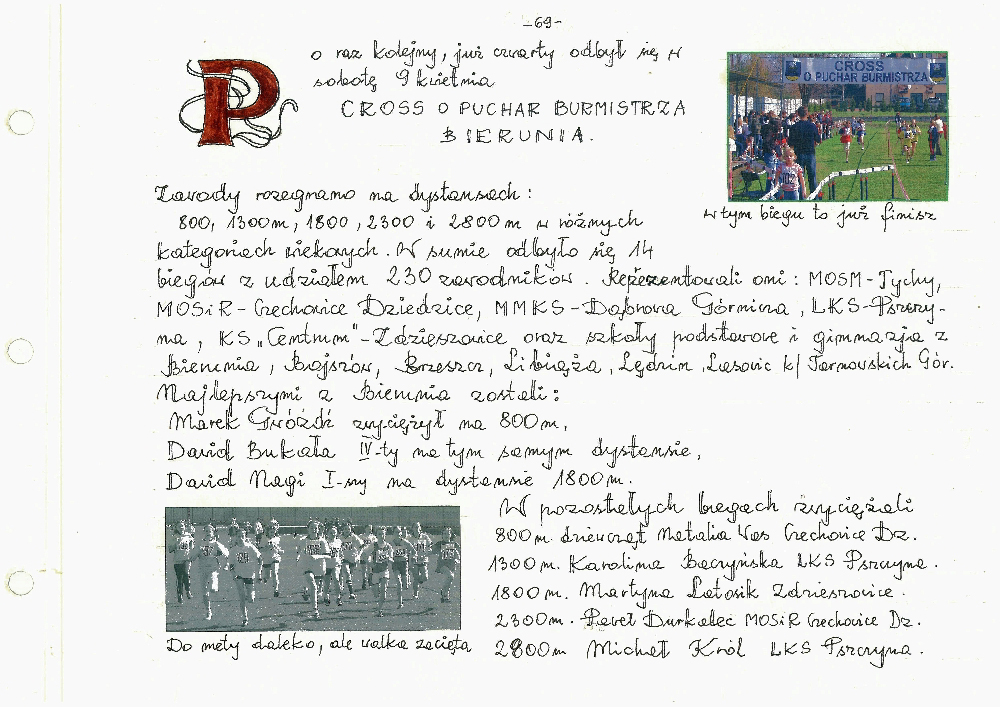 -69-
Po raz kolejny, już czwarty odbył się w
sobotę 9 kwietnia
CROSS O PUCHAR BURMISTRZA
BIERUNIA.
CROSS
O PUCHAR BURMISTRZA
w tym biegu to już finisz
Zawody rozegrano na dystansach:
800, 1300m, 1800, 2300 i 2800m w różnych
kategoriach wiekowych. W sumie odbyło się 14
biegów z udziałem 230 zawodników. Reprezentowali oni: MOSM-Tychy,
MOSiR-Czechowice Dziedzice, MMKS-Dąbrowa Górnicza, LKS-Pszczy-
na, KS „Centrum"-Zdzieszowice oraz szkoły podstawowe i gimnazja z
Bierunia, Bojszów, Brzeszcz, Libiąża, Lędzin, Lasowic k/ Tarnowskich Gór.
Najlepszymi z Bierunia zostali:
Marek Gwóźdź zwyciężył na 800m,
Dawid Bukała IV-ty na tym samym dystansie,
Dawid Nagi I-szy na dystansie 1800m.
W pozostałych biegach zwyciężali
800m. dziewcząt Natalia Wos Czechowice Dz.
1300m. Karolina Baczyńska LKS Pszczyna.
1800m. Martyna Latosik Zdzieszowice.
2300m. Paweł Durkalec MOSiR Czechowice Dz.
2800m Michał Król LKS Pszczyna.
Do mety daleko, ale walka zacięta